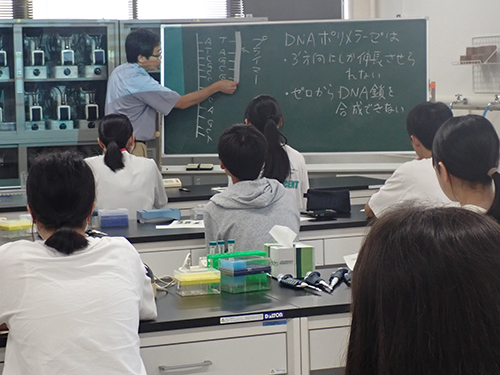 DNAポリメラーゼは
・3'方向にしか伸長させら
れない
・ゼロからDNA鎖を
合成できない
プライマー
DALTON